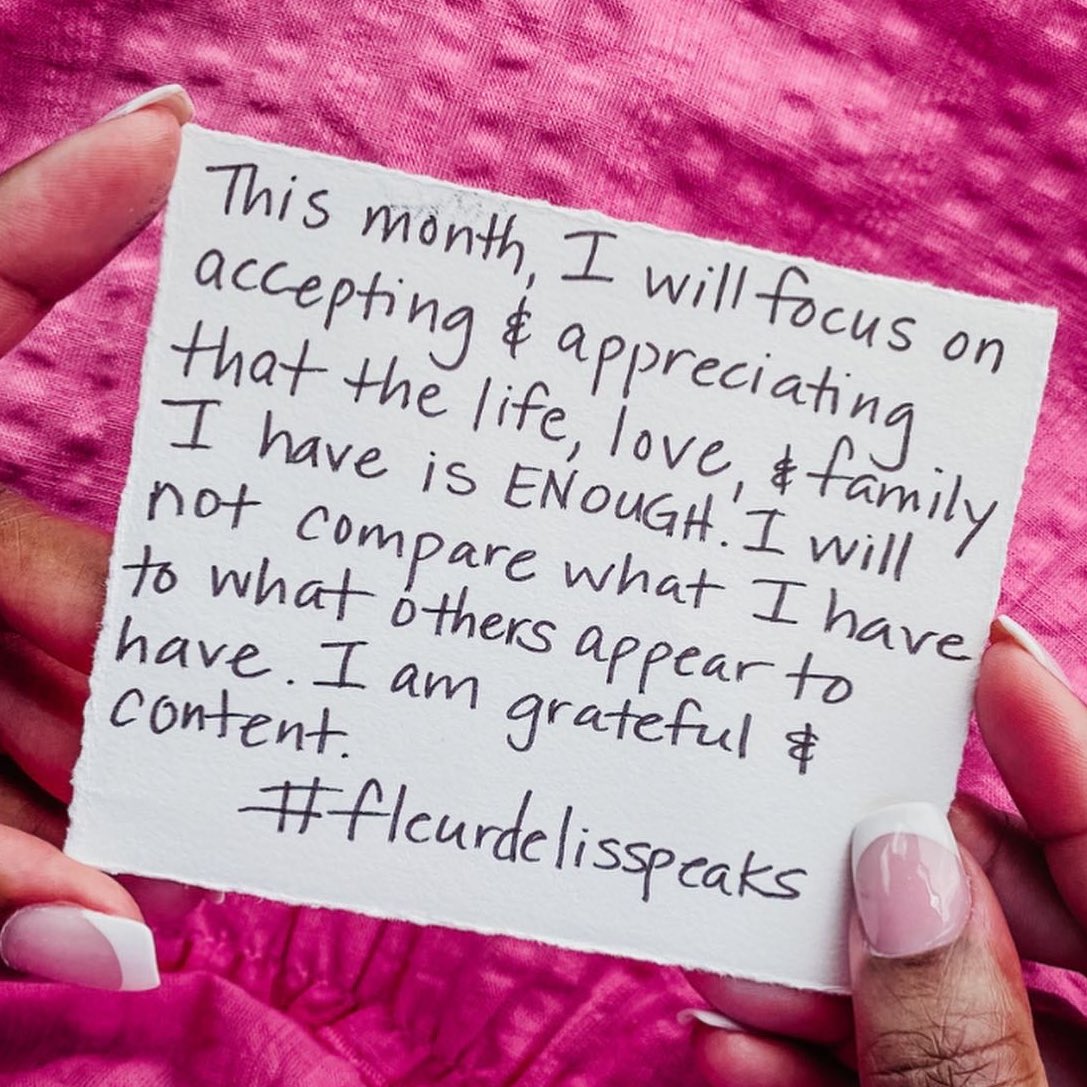 This month, I will focus on
accepting & appreciating
that the life, love, & family
I have is ENOUGH. I will
not compare what I have
to what others appear to
have. I am grateful &
content.
#fleurdelisspeaks